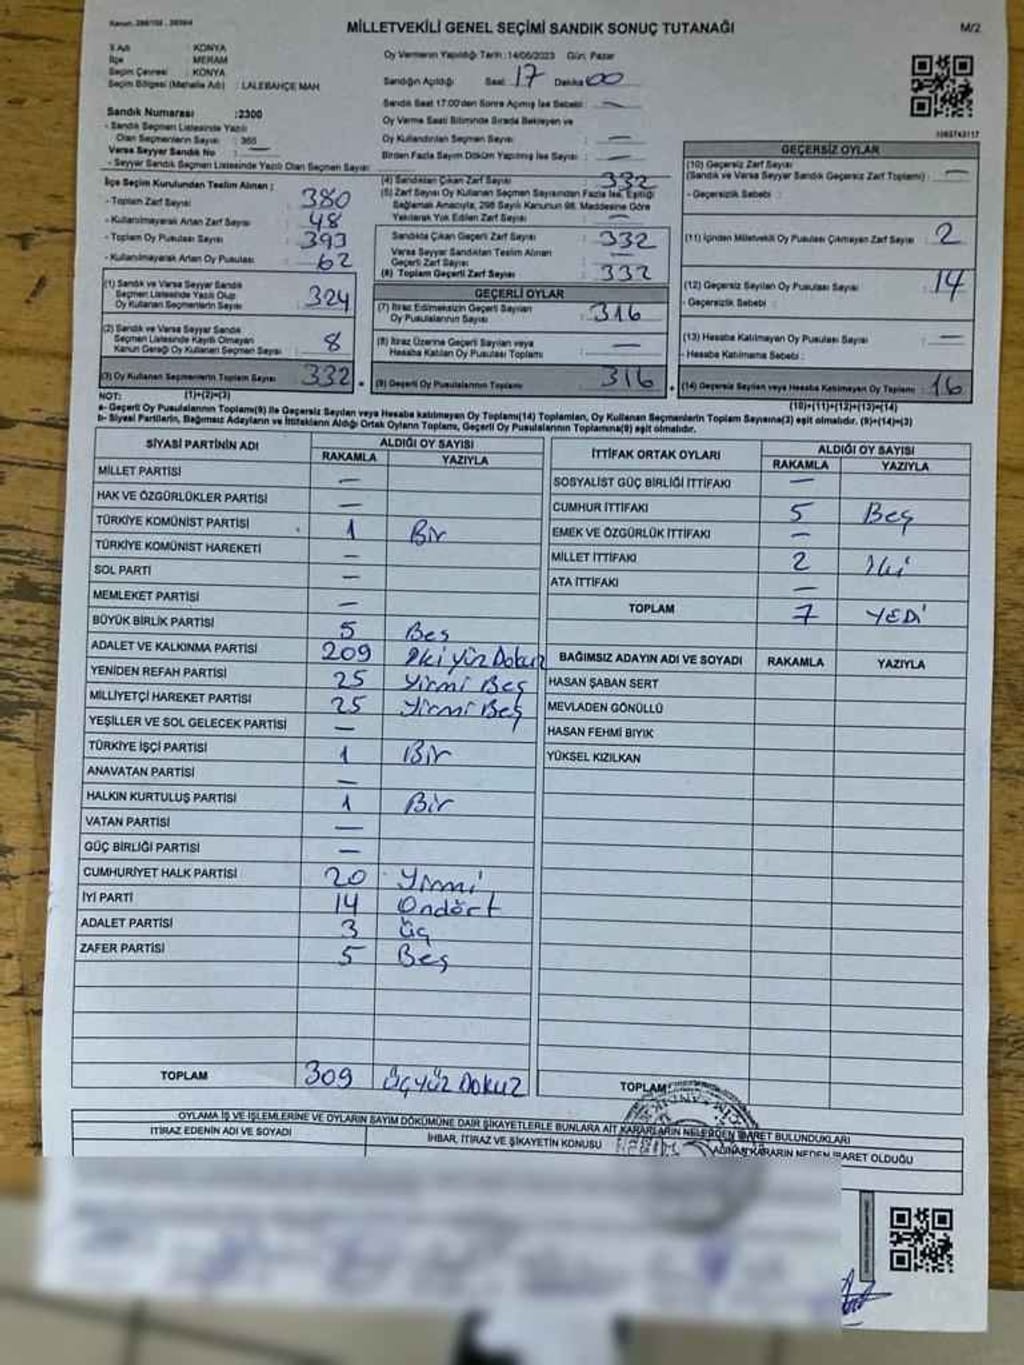 MİLLETVEKİLİ GENEL SEÇİMİ SANDIK SONUÇ TUTANAĞI
M/2
İl Adı : KONYA
İlçe : MERAM
Seçim Çevresi : KONYA
Seçim Bölgesi (Mahalle Adı) : LALEBAHÇE MAH
Oy Vermenin Yapıldığı Tarih : 14/05/2023 Gün: Pazar
Sandığın Açıldığı Saat: 17 Dakika 00
Sandık Saat 17:00'den Sonra Açılmış İse Sebebi : —
Oy Verme Saati Bitiminde Sırada Bekleyen ve
Oy Kullandırılan Seçmen Sayısı : —
Birden Fazla Sayım Döküm Yapılmış İse Sayısı : —
Sandık Numarası :2300
- Sandık Seçmen Listesinde Yazılı
Olan Seçmenlerin Sayısı : 365
Varsa Seyyar Sandık No : —
- Seyyar Sandık Seçmen Listesinde Yazılı Olan Seçmen Sayısı:
İlçe Seçim Kurulundan Teslim Alınan :
- Toplam Zarf Sayısı : 380
- Kullanılmayarak Artan Zarf Sayısı : 48
- Toplam Oy Pusulası Sayısı : 393
- Kullanılmayarak Artan Oy Pusulası : 62
(1) Sandık ve Varsa Seyyar Sandık
Seçmen Listesinde Yazılı Olup
Oy Kullanan Seçmenlerin Sayısı : 324
(2) Sandık ve Varsa Seyyar Sandık
Seçmen Listesinde Kayıtlı Olmayan
Kanun Gereği Oy Kullanan Seçmen Sayısı : 8
(3) Oy Kullanan Seçmenlerin Toplam Sayısı : 332
(1)+(2)=(3)
(4) Sandıktan Çıkan Zarf Sayısı : 332
(5) Zarf Sayısı Oy Kullanan Seçmen Sayısından Fazla İse, Eşitliği
Sağlamak Amacıyla, 298 Sayılı Kanunun 98. Maddesine Göre
Yakılarak Yok Edilen Zarf Sayısı : —
Sandıkta Çıkan Geçerli Zarf Sayısı : 332
Varsa Seyyar Sandıktan Teslim Alınan
Geçerli Zarf Sayısı : —
(6) Toplam Geçerli Zarf Sayısı : 332
GEÇERLİ OYLAR
(7) İtiraz Edilmeksizin Geçerli Sayılan
Oy Pusulalarının Sayısı : 316
(8) İtiraz Üzerine Geçerli Sayılan veya
Hesaba Katılan Oy Pusulası Toplamı : —
(9) Geçerli Oy Pusulalarının Toplamı : 316
GEÇERSİZ OYLAR
(10) Geçersiz Zarf Sayısı
(Sandık ve Varsa Seyyar Sandık Geçersiz Zarf Toplamı) : —
- Geçersizlik Sebebi :
(11) İçinden Milletvekili Oy Pusulası Çıkmayan Zarf Sayısı : 2
(12) Geçersiz Sayılan Oy Pusulası Sayısı : 14
- Geçersizlik Sebebi :
(13) Hesaba Katılmayan Oy Pusulası Sayısı : —
- Hesaba Katılmama Sebebi :
(14) Geçersiz Sayılan veya Hesaba Katılmayan Oy Toplamı : 16
(10)+(11)+(12)+(13)=(14)
NOT:
a- Geçerli Oy Pusulalarının Toplamı(9) ile Geçersiz Sayılan veya Hesaba katılmayan Oy Toplamı(14) Toplamları, Oy Kullanan Seçmenlerin Toplam Sayısına(3) eşit olmalıdır. (9)+(14)=(3)
b- Siyasi Partilerin, Bağımsız Adayların ve İttifakların Aldığı Ortak Oyların Toplamı, Geçerli Oy Pusulalarının Toplamına(9) eşit olmalıdır.
SİYASİ PARTİNİN ADI ALDIĞI OY SAYISI
RAKAMLA YAZIYLA
MİLLET PARTİSİ —
HAK VE ÖZGÜRLÜKLER PARTİSİ —
TÜRKİYE KOMÜNİST PARTİSİ 1 Bir
TÜRKİYE KOMÜNİST HAREKETİ —
SOL PARTİ —
MEMLEKET PARTİSİ —
BÜYÜK BİRLİK PARTİSİ 5 Beş
ADALET VE KALKINMA PARTİSİ 209 İki yüz Dokuz
YENİDEN REFAH PARTİSİ 25 Yirmi Beş
MİLLİYETÇİ HAREKET PARTİSİ 25 Yirmi Beş
YEŞİLLER VE SOL GELECEK PARTİSİ —
TÜRKİYE İŞÇİ PARTİSİ 1 Bir
ANAVATAN PARTİSİ —
HALKIN KURTULUŞ PARTİSİ 1 Bir
VATAN PARTİSİ —
GÜÇ BİRLİĞİ PARTİSİ —
CUMHURİYET HALK PARTİSİ 20 Yirmi
İYİ PARTİ 14 Ondört
ADALET PARTİSİ 3 Üç
ZAFER PARTİSİ 5 Beş
TOPLAM 309 ÜçYüz Dokuz
İTTİFAK ORTAK OYLARI ALDIĞI OY SAYISI
RAKAMLA YAZIYLA
SOSYALİST GÜÇ BİRLİĞİ İTTİFAKI —
CUMHUR İTTİFAKI 5 Beş
EMEK VE ÖZGÜRLÜK İTTİFAKI —
MİLLET İTTİFAKI 2 İki
ATA İTTİFAKI —
TOPLAM 7 YEDİ
BAĞIMSIZ ADAYIN ADI VE SOYADI RAKAMLA YAZIYLA
HASAN ŞABAN SERT
MEVLADEN GÖNÜLLÜ
HASAN FEHMİ BIYIK
YÜKSEL KIZILKAN
TOPLAM
OYLAMA İŞ VE İŞLEMLERİNE VE OYLARIN SAYIM DÖKÜMÜNE DAİR ŞİKAYETLERLE BUNLARA AİT KARARLARIN NELERDEN İBARET BULUNDUKLARI
İTİRAZ EDENİN ADI VE SOYADI
İHBAR, İTİRAZ VE ŞİKAYETİN KONUSU
ALINAN KARARIN NEDEN İBARET OLDUĞU